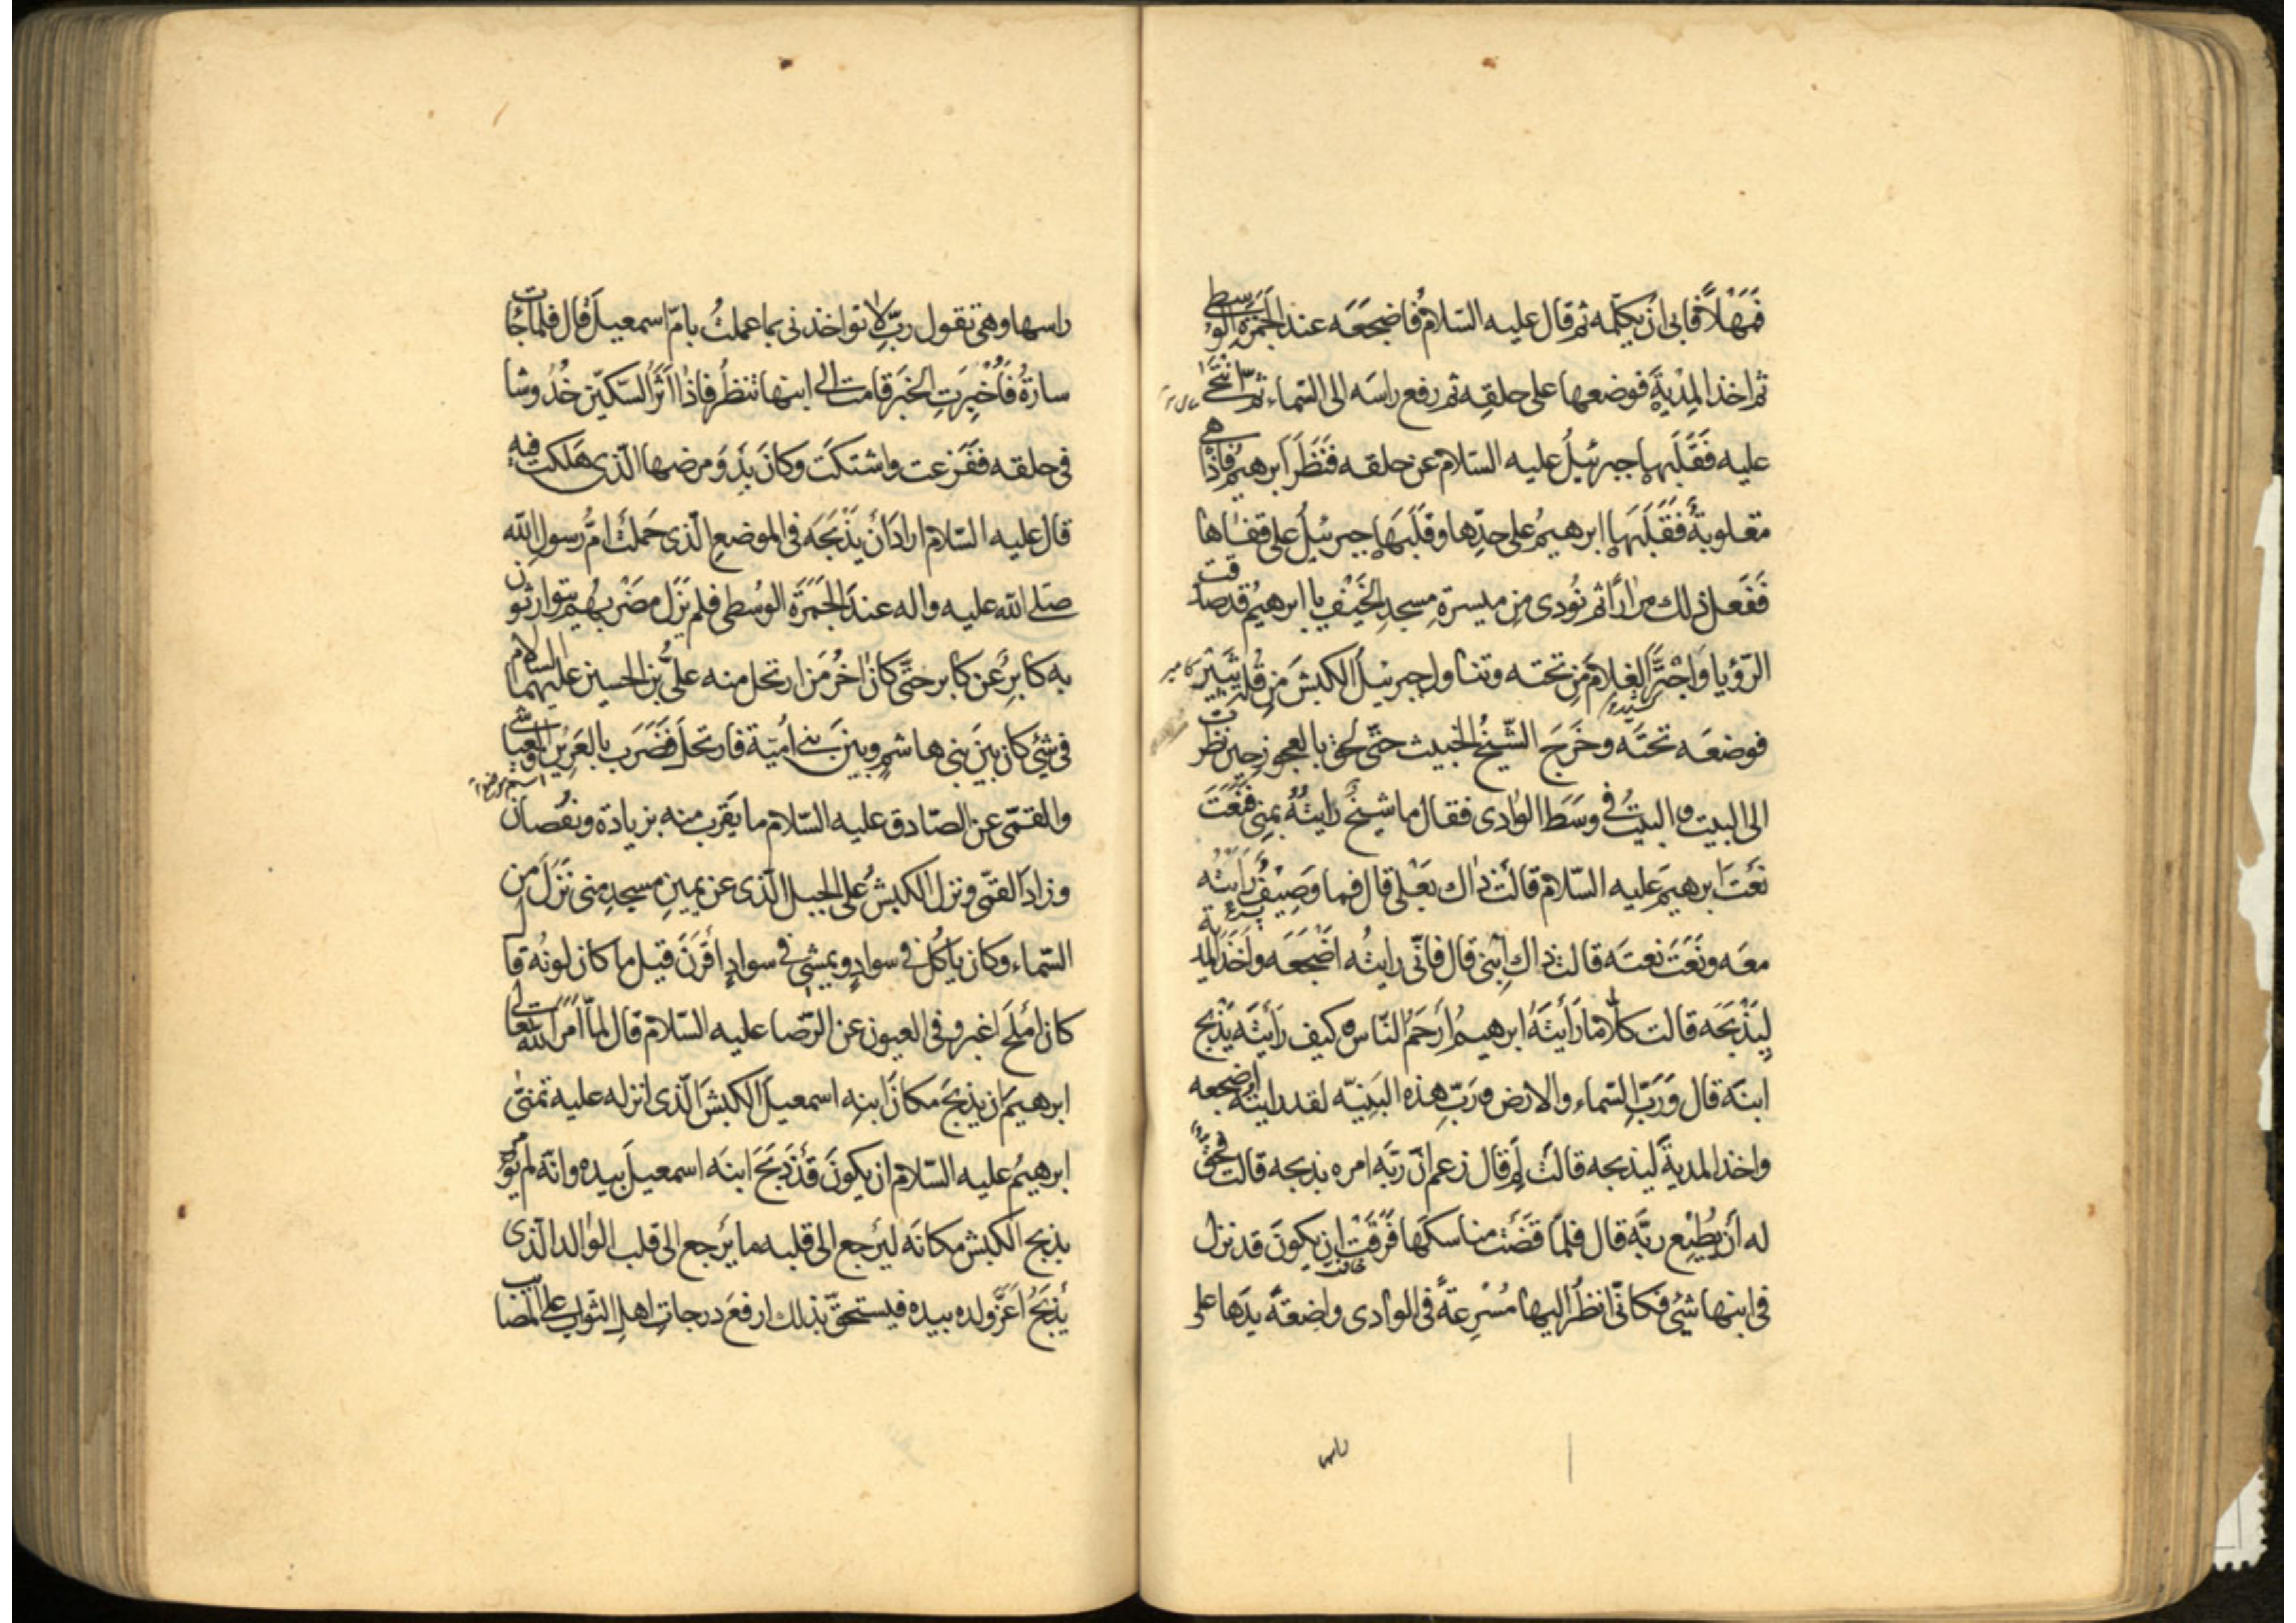 فَمَهْلاً فابى ان يكلّمه ثم قال عليه السّلام فاضجعَه عند الجَمَرَةِ الوُسطى
ثم اخذ المِدْيةَ فوضعها على حلقِه ثم رفع راسَه الى السّماء ثمّ انتَحٰى
عليه فَقَلَبَها جبرئيلُ عليه السّلام عن حلقه فنَظَرَ ابرهيمُ فاذا هى
مقلوبةٌ فَقَلَبَها ابرهيمُ على حدِّها وقَلَبَها جبرئيلُ على قفاها
فَفَعل ذلك مِراراً ثم نُودى مِن ميسرةِ مسجدِ الخَيْفِ يا ابرهيمُ قد صدّقت
الرّؤيا وَاجْتَرَّ الغلامَ مِن تحته وتناول جبرئيلُ الكبشَ مِن قُلّةِ ثَبيْر
فوضعَه تحتَه وخَرَجَ الشّيخُ الخبيث حتّى لحق بالعجوز حين نظرت
الى البيت والبيتُ فى وسَطَ الوادى فقال ما شيخٌ رايتُهُ بمِنى فَنَعَتَ
نَعْتَ ابرهيمَ عليه السّلام قالَتْ ذاك بَعْلى قال فما وَصِيْفٌ رَاَيْتُه
معَه ونَعَتَ نعتَه قالت ذاك اِبْنى قال فانّى رايتُه اَضْجَعَه واَخَذَ المِدية
لِيَذْبَحَه قالت كلّا ما رَاَيْتَهُ ابرهيمُ اَرحَمُ النّاس وكيف رَاَيْتَه يَذْبح
ابنَه قال وَرَبِّ السّماء والارض وَرَبِّ هذه البَنِيّه لقد رايتُه اضجعه
واخذ المديةَ ليذبحه قالَتْ لِمَ قال زعم انّ ربّه امره بذبحه قالت فحقٌّ
له اَن يُطِيْع ربَّه قال فلمّا قَضَتْ مناسكَها فَرِقَتْ ان يكونَ قد نزل
فى ابنها شَئٌ فكانّى انظُرُ اليها مُسْرِعةً فى الوادى واضِعةً يدَها على
راسها وهى تقول ربِّ لا تواخذنى بما عملتُ بامّ اسمعيلَ قال فلما جات
سارةُ فَاُخْبِرَتِ الخبَر قامت الى ابنها تنظُرُ فاذا اَثَرُ السّكيّن خُدُوشا
فى حلقه ففَزِعت واشتكَتْ وكان بَدْوَ مرضها الّذى هَلَكت فيه
قال عليه السّلام ارادَ اَن يَذْبَحَه فى الموضعِ الّذى حَملَتْ امُّ رسولِ الله
صَلى الله عليه واله عندَ الجَمَرَةِ الوُسطى فلم يَزَل مضْرَبَهم يتوارثون
به كابرٌ عن كابر حتَّى كانَ اخرُ مَن ارتحل منه علىُّ بن الحسين عليهما السلام
فى شئٍ كان بينَ بنى هاشمٍ وبينَ بنى اُميّة فارتحلَ فضَرَب بالعَرِيْن والعيّاشى
والقمّى عن الصّادق عليه السّلام ما يَقرب منه بزيادة ونقُصان
وزادَ القمّى ونزل الكبشُ على الجبلِ الّذى عن يمينِ مسجدِ منى نَزَلَ مِن
السّماء وكان ياكُل فى سوادٍ ويمشى فى سوادٍ اَقْرَنَ قيل ما كان لونُه قال
كان اَمْلَحَ اغبر وفى العيون عن الرّضا عليه السّلام قال لمّا اَمَرَ الله تعالى
ابرهيمَ ان يذبحَ مكانَ ابنِه اسمعيلَ الكبشَ الّذى انزله عليه تمنّى
ابرهيمُ عليه السّلام ان يكونَ قَدْ ذَبَحَ ابنَه اسمعيلَ بيده وانّه لم يُؤمر
بذبح الكبش مكانَه ليَرجع الى قلبه ما يَرجع الى قلب الوالد الّذى
يُذبحُ اَعَزَّ ولده بيده فيستحقّ بذلك ارفعَ درجاتِ اهلِ الثّواب على المصايب